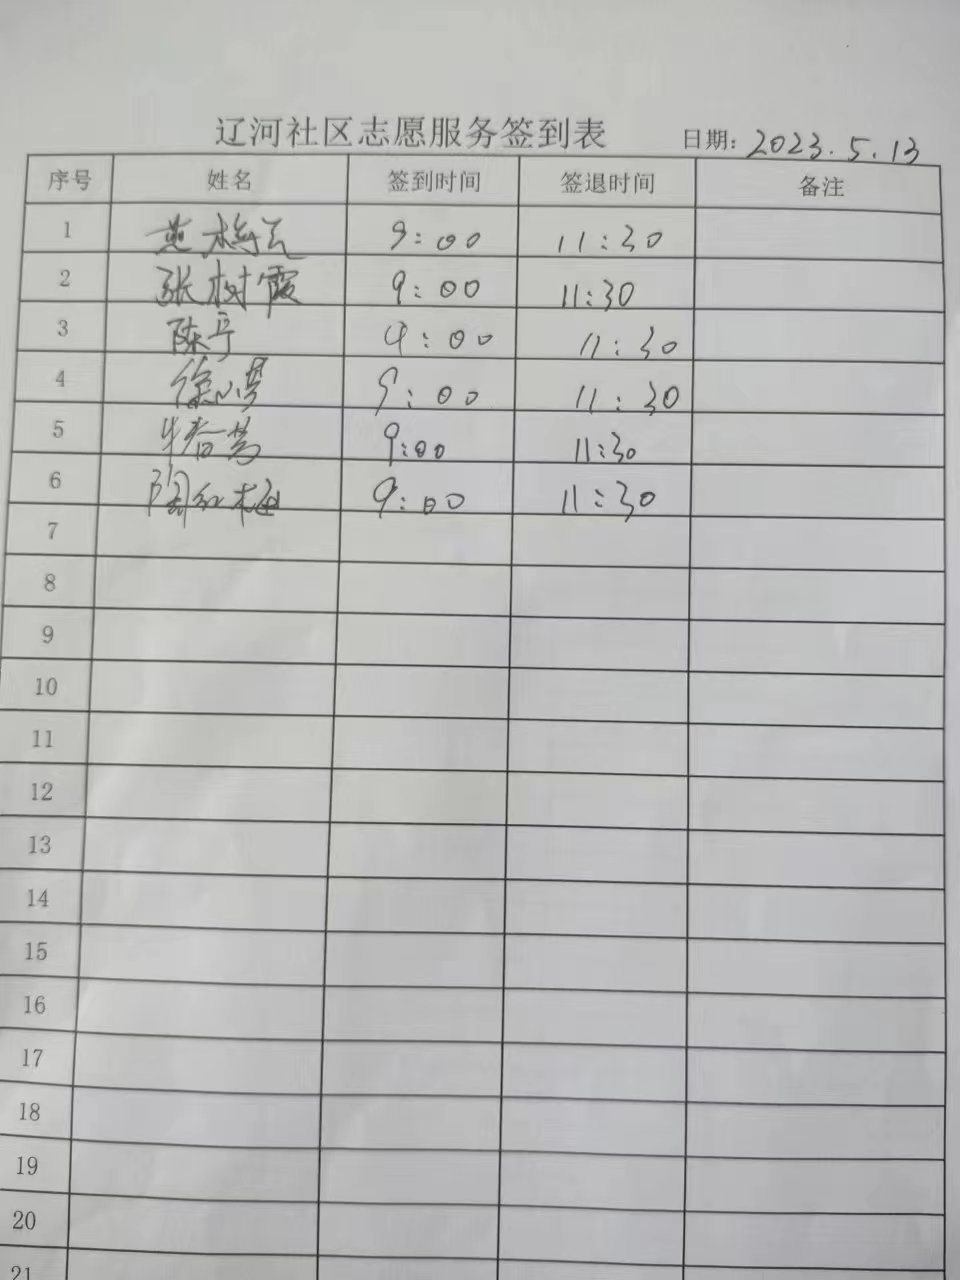 辽河社区志愿服务签到表 日期: 2023.5.13
序号 姓名 签到时间 签退时间 备注
1 9:00 11:30
2 张树霞 9:00 11:30
3 陈宁 9:00 11:30
4 9:00 11:30
5 9:00 11:30
6 陶红梅 9:00 11:30
7
8
9
10
11
12
13
14
15
16
17
18
19
20
21